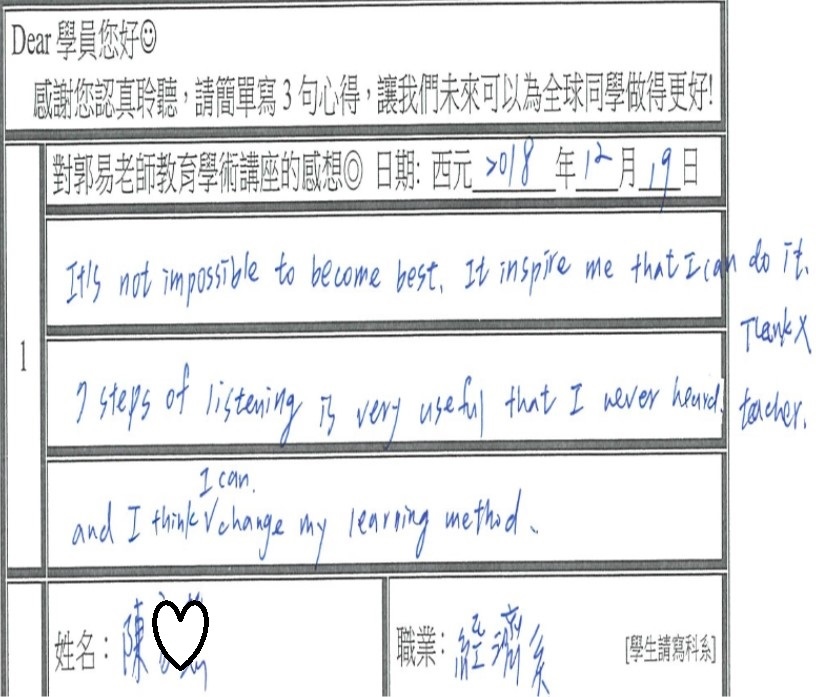 Dear 學員您好☺
感謝您認真聆聽，請簡單寫 3 句心得，讓我們未來可以為全球同學做得更好!
1
對郭易老師教育學術講座的感想◎ 日期: 西元 2018 年 12 月 19 日
It's not impossible to become best. It inspire me that I can do it.
Thank X
7 steps of listening is very useful that I never heard. teacher.
I can.
and I think √ change my learning method.
姓名：陳
職業：經濟系 [學生請寫科系]